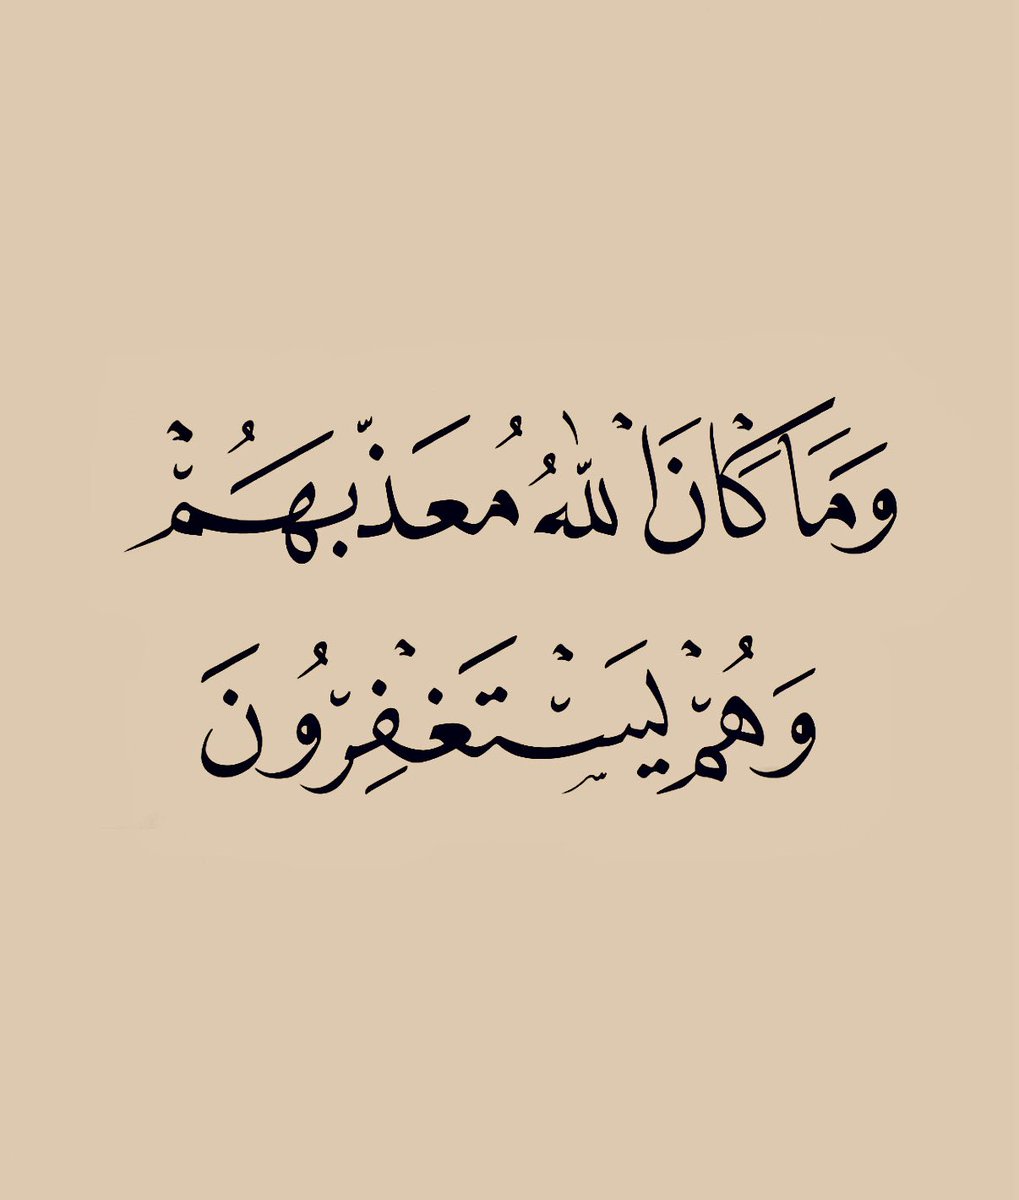 وَمَا كَانَ اللّٰهُ مُعَذِّبَهُمْ
وَهُمْ يَسْتَغْفِرُونَ